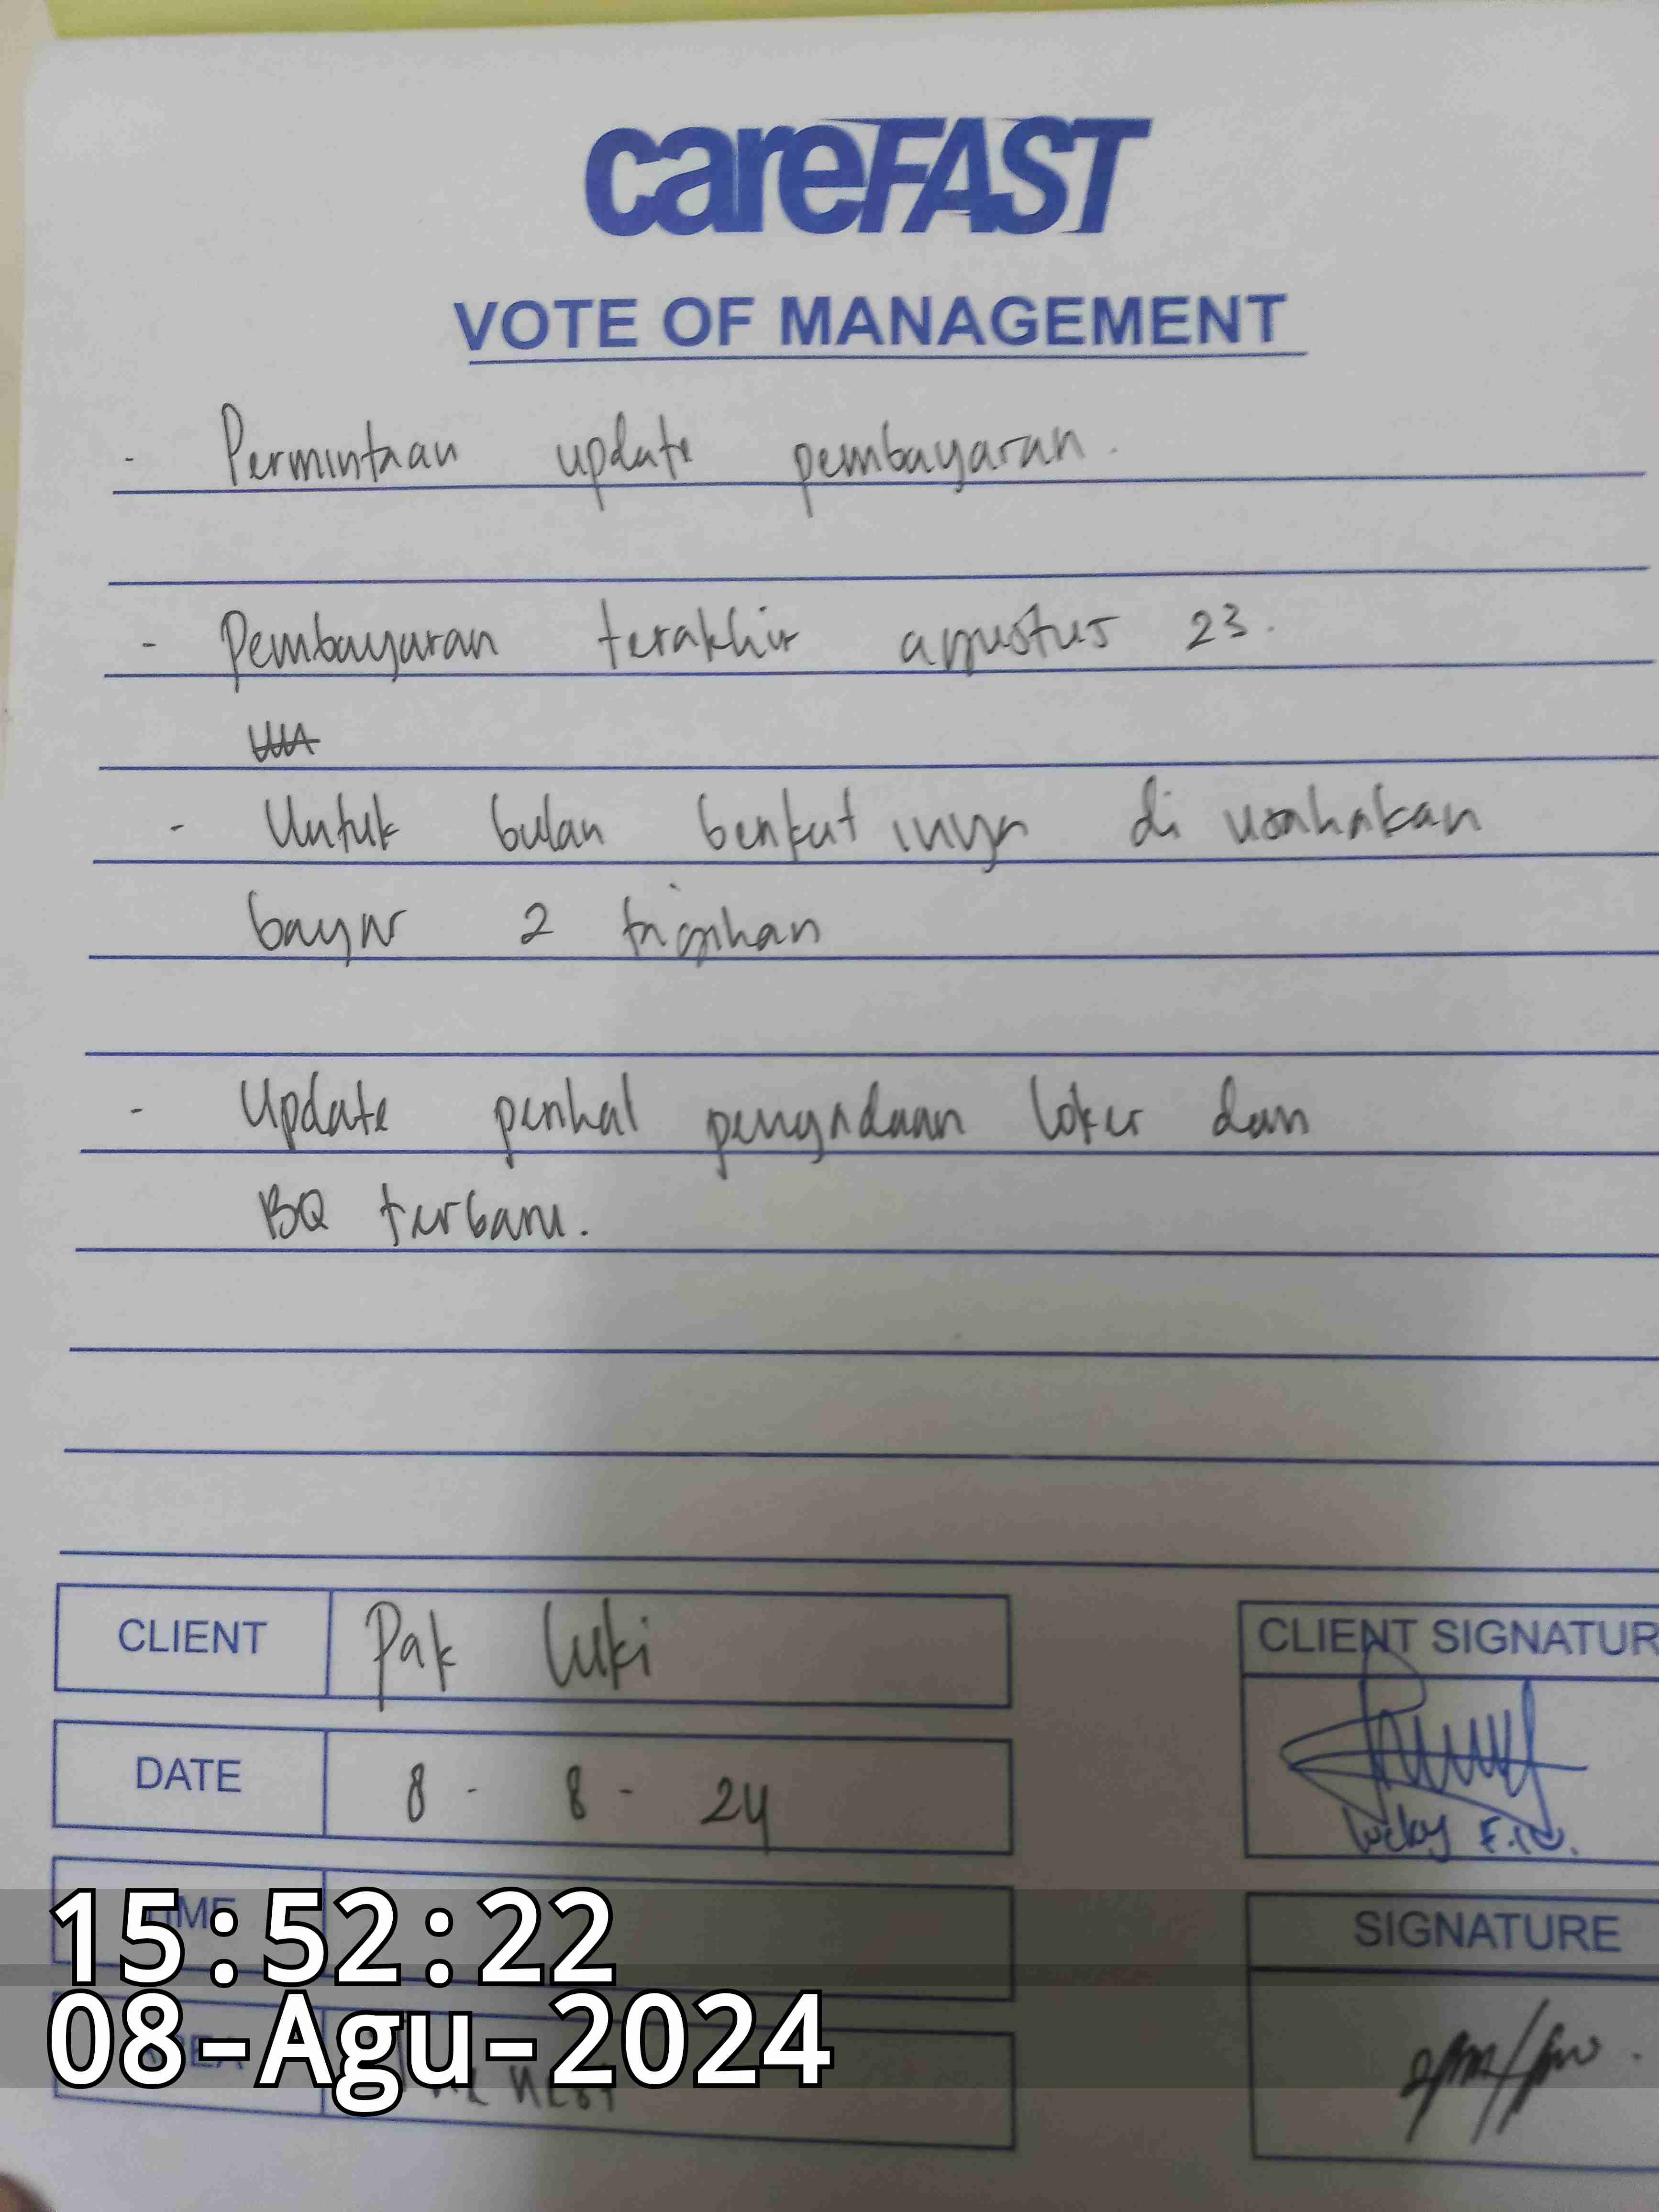 careFAST
VOTE OF MANAGEMENT
- Permintaan update pembayaran.
- Pembayaran terakhir agustus 23.
- Untuk bulan berikut innya di usahakan
bayar 2 tagihan
- Update perihal pengadaan loker dan
BQ terbaru.
CLIENT Pak Luki
CLIENT SIGNATUR
DATE 8 - 8 - 24
Lucky
15:52:22
SIGNATURE
08-Agu-2024